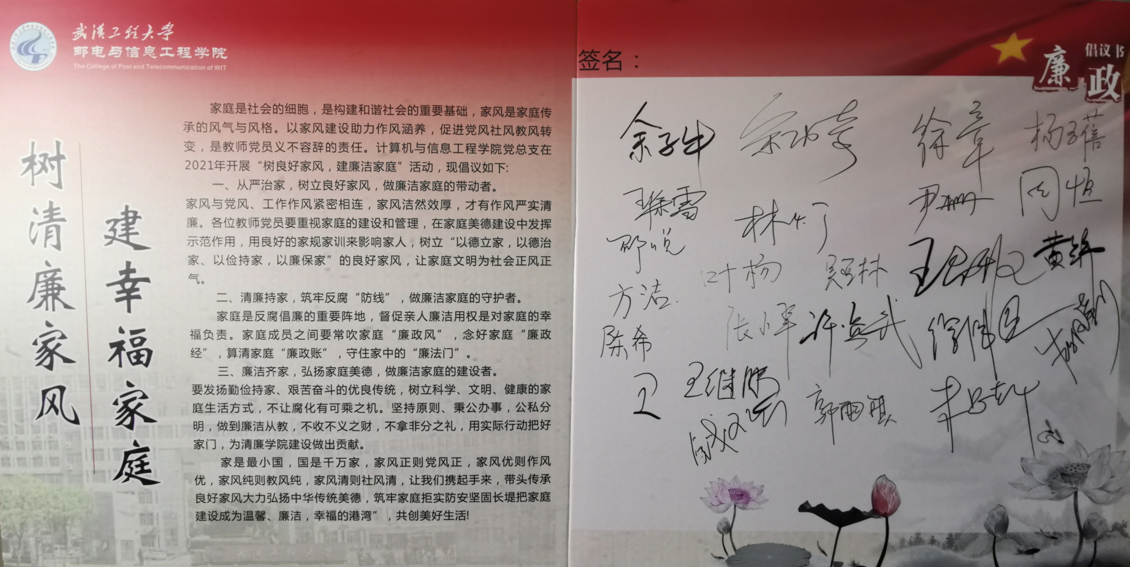 武汉工程大学
邮电与信息工程学院
The College of Post and Telecommunication of WIT
树清廉家风
建幸福家庭
家庭是社会的细胞，是构建和谐社会的重要基础，家风是家庭传
承的风气与风格。以家风建设助力作风涵养，促进党风社风教风转
变，是教师党员义不容辞的责任。计算机与信息工程学院党总支在
2021年开展“树良好家风，建廉洁家庭”活动，现倡议如下:
一、从严治家，树立良好家风，做廉洁家庭的带动者。
家风与党风、工作作风紧密相连，家风洁然效厚，才有作风严实清
廉。各位教师党员要重视家庭的建设和管理，在家庭美德建设中发挥
示范作用，用良好的家规家训来影响家人，树立“以德立家，以德治
家、以俭持家，以廉保家”的良好家风，让家庭文明为社会正风正
气。
二、清廉持家，筑牢反腐“防线”，做廉洁家庭的守护者。
家庭是反腐倡廉的重要阵地，督促亲人廉洁用权是对家庭的幸
福负责。家庭成员之间要常吹家庭“廉政风”，念好家庭“廉政
经”，算清家庭“廉政账”，守住家中的“廉法门”。
三、廉洁齐家，弘扬家庭美德，做廉洁家庭的建设者。
要发扬勤俭持家、艰苦奋斗的优良传统，树立科学、文明、健康的家
庭生活方式，不让腐化有可乘之机。坚持原则、秉公办事，公私分
明，做到廉洁从教，不收不义之财，不拿非分之礼，用实际行动把好
家门，为清廉学院建设做出贡献。
家是最小国，国是千万家，家风正则党风正，家风优则作风
优，家风纯则教风纯，家风清则社风清，让我们携起手来，带头传承
良好家风大力弘扬中华传统美德，筑牢家庭拒实防安坚固长堤把家庭
建设成为温馨、廉洁，幸福的港湾”，共创美好生活!
签名：
倡议书
廉政
徐章
林
叶杨
方洁
陈希
王维鹏